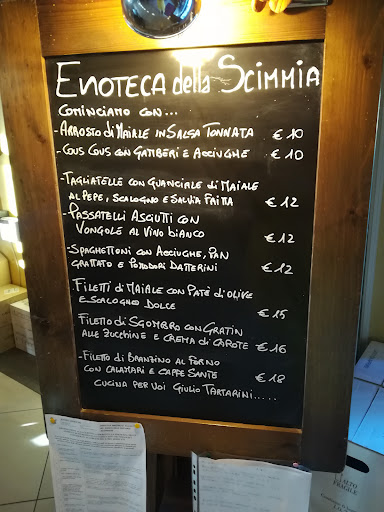 ENOTECA della SCIMMIA
COMINCIAMO CON...
- ARROSTO di MAIALE IN SALSA TONNATA € 10
- COUS COUS CON GAMBERI E ACCIUGHE € 10
- TAGLIATELLE CON GUANCIALE di MAIALE
AL PEPE, SCALOGNO E SALVIA FRITTA € 12
- PASSATELLI ASCIUTTI CON
VONGOLE AL VINO BIANCO € 12
- SPAGHETTONI CON ACCIUGHE, PAN
GRATTATO E POMODORI DATTERINI € 12
FILETTI di MAIALE CON PATÈ d'OLIVE
E SCALOGNO DOLCE € 15
FILETTO di SGOMBRO CON GRATIN
ALLE ZUCCHINE E CREMA di CAROTE € 16
- FILETTO di BRANZINO AL FORNO
CON CALAMARI E CAPPE SANTE € 18
CUCINA PER VOI GIULIO TARTARINI.....
ALTO
FRAGILE